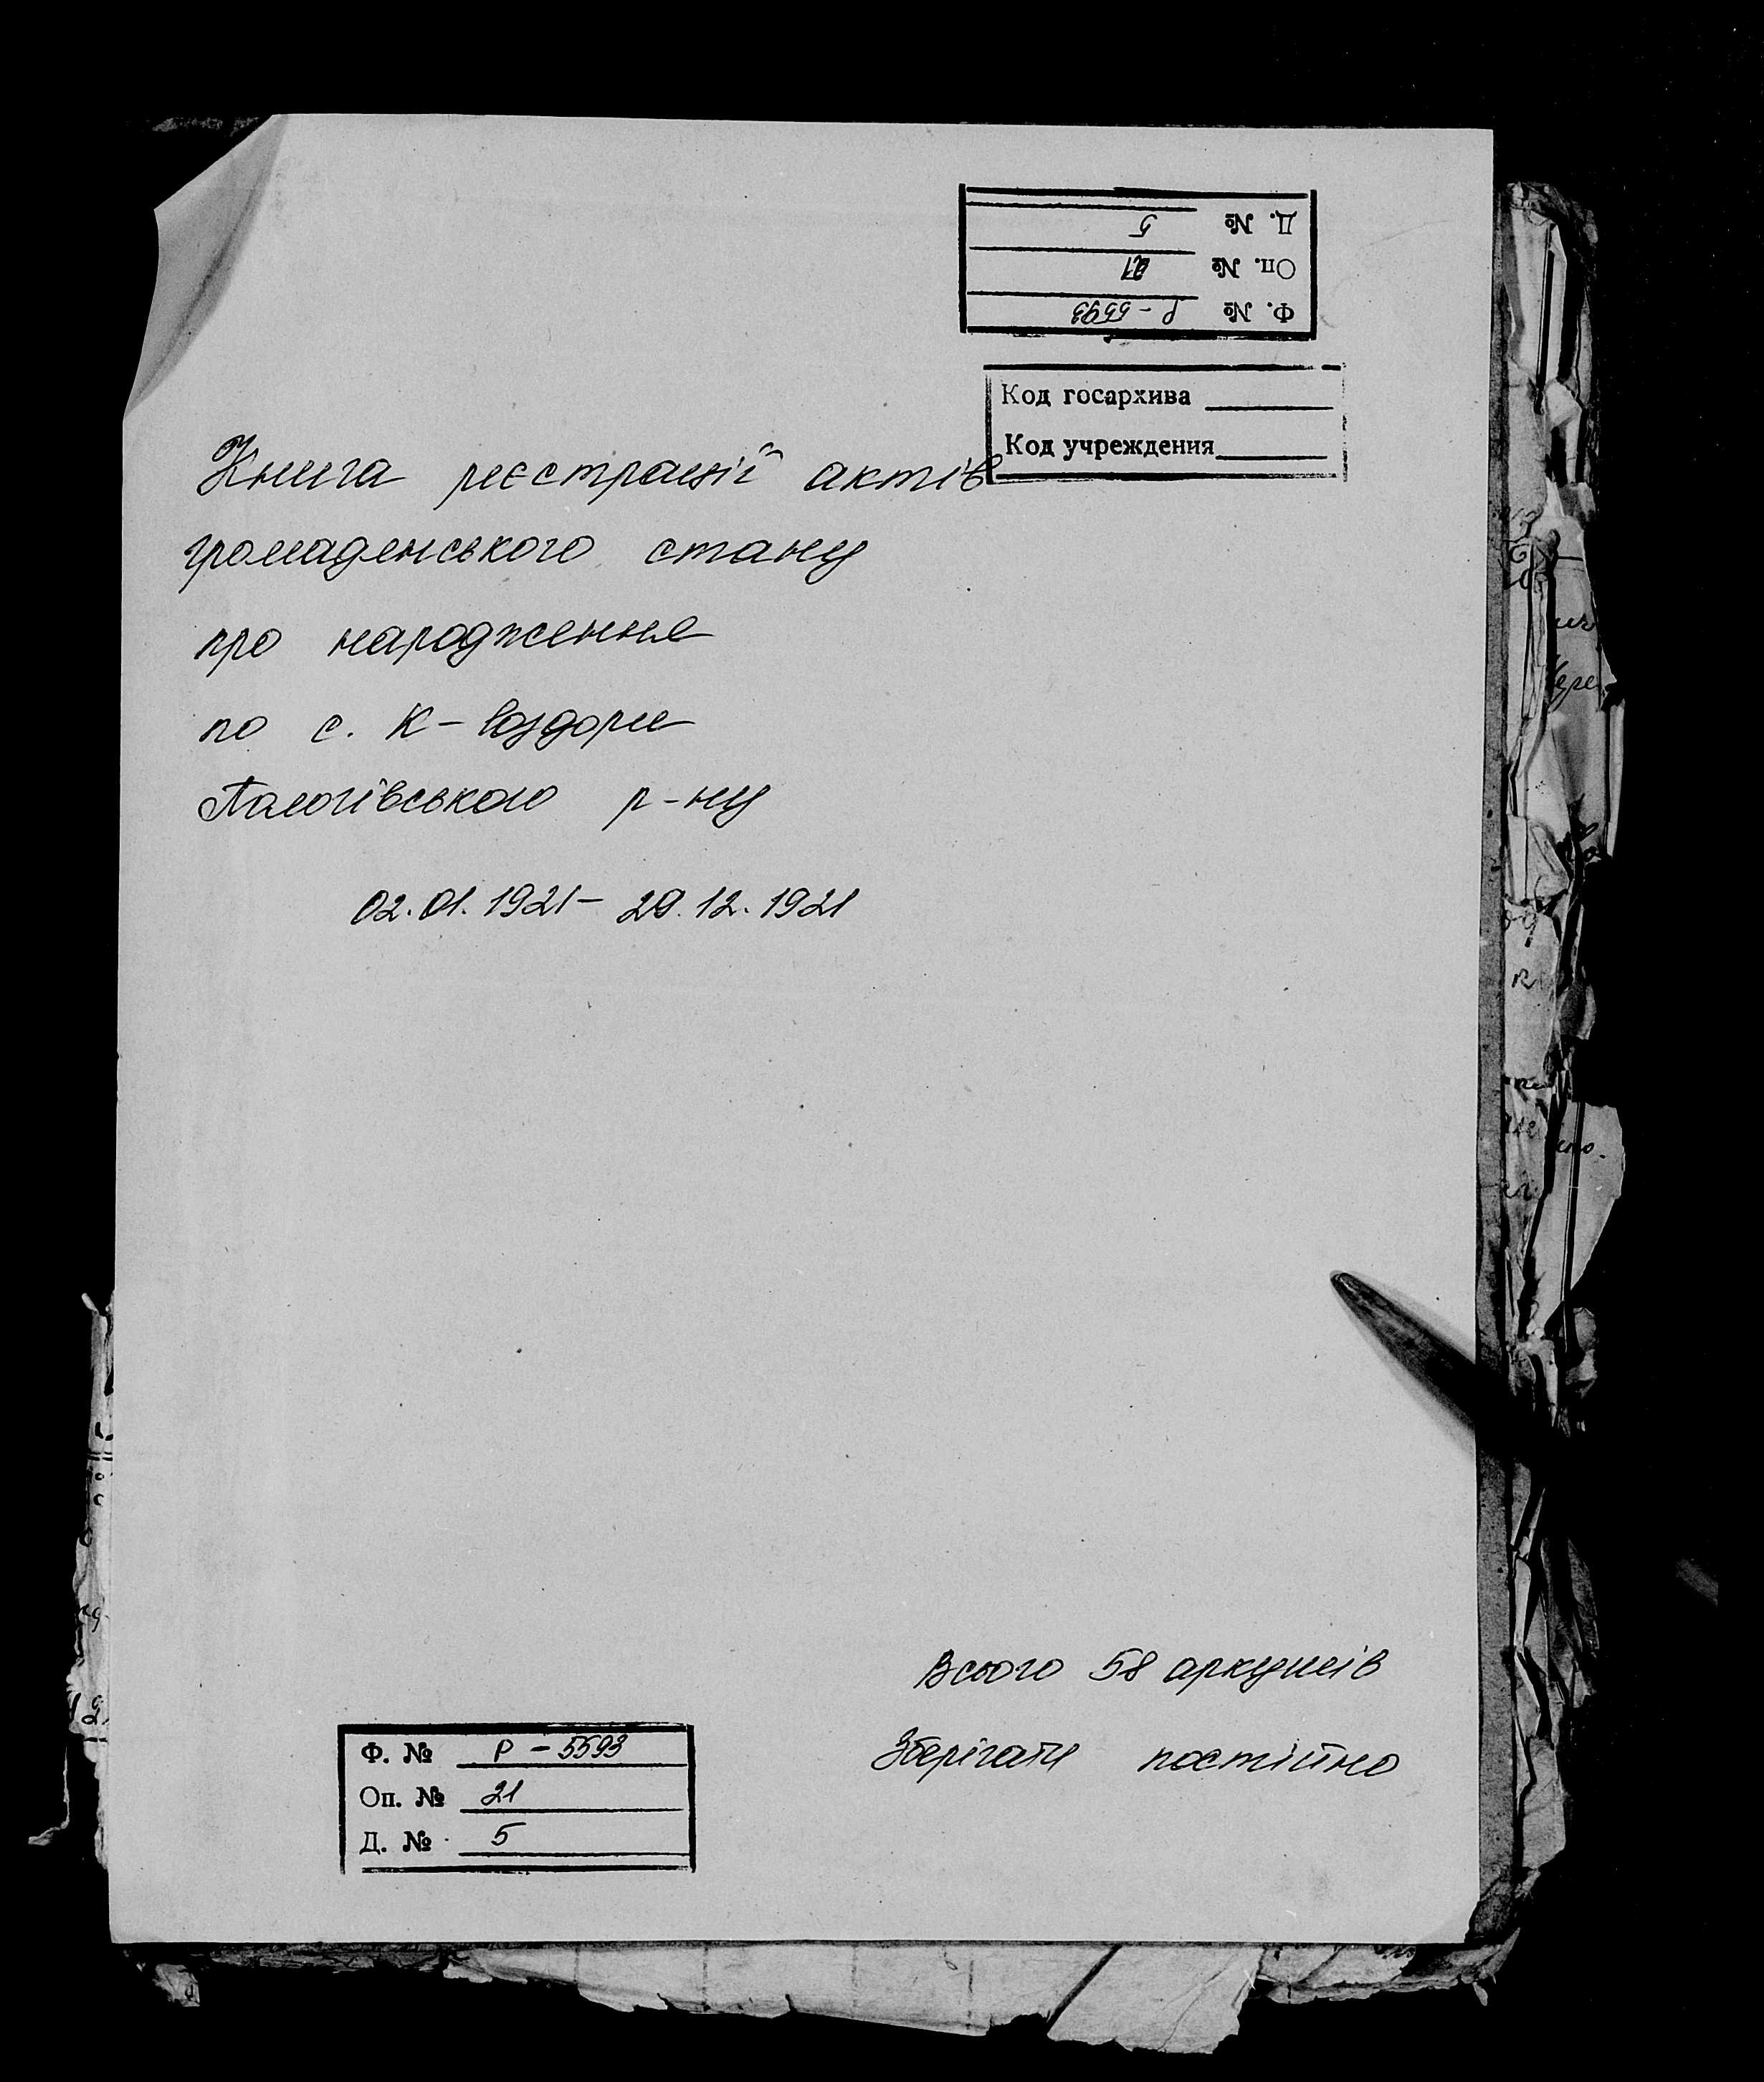 Д. № 5
Оп. № 21
Ф. № Р-5593
Код госархива
Код учреждения
Книга реєстрації актів
громадянського стану
про народження
по с. К-Роздори
Пологівського р-ну
02.01.1921- 29.12.1921
Всього 58 аркушів
Зберігати постійно
Ф. № Р-5593
Оп. № 21
Д. № 5